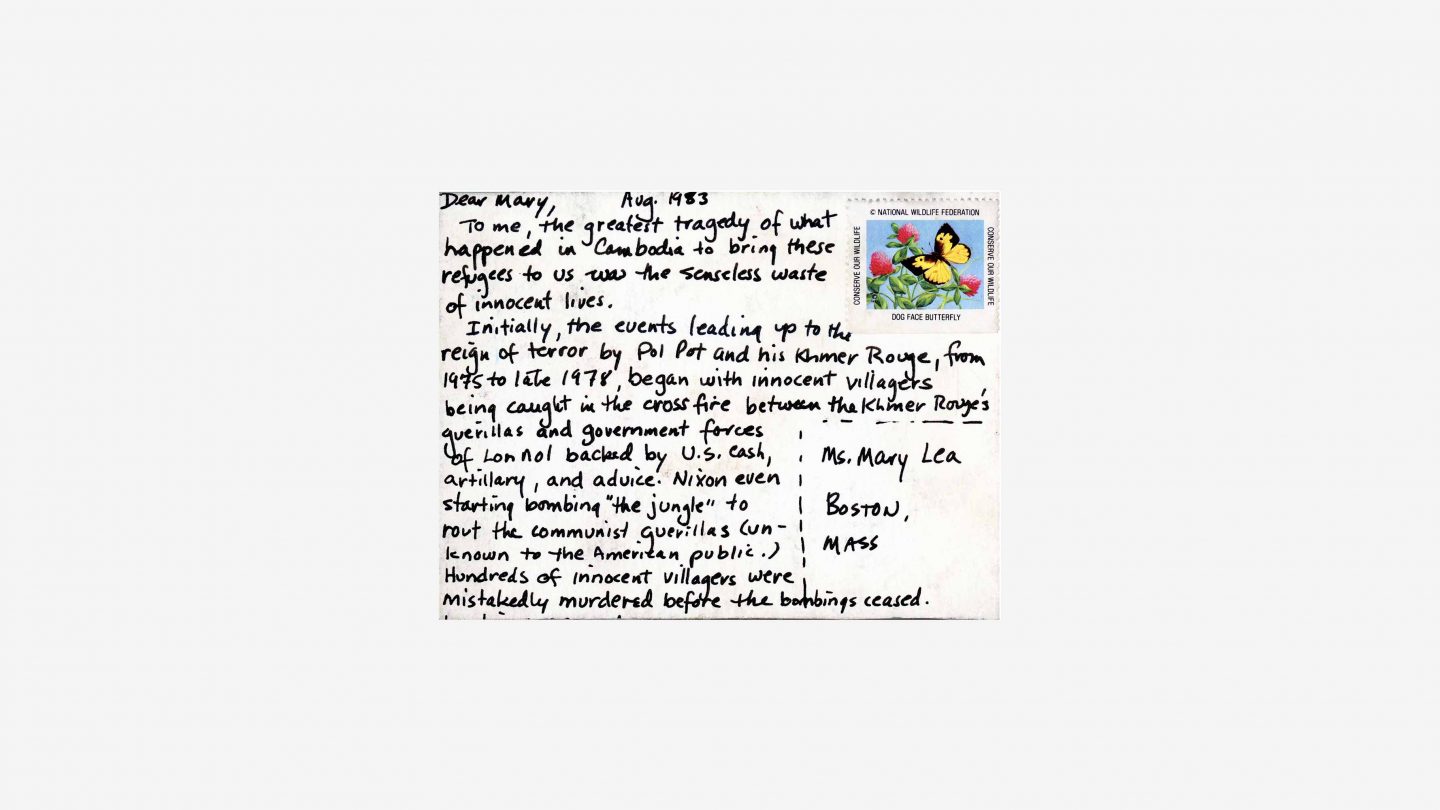 Dear Mary, Aug. 1983
To me, the greatest tragedy of what
happened in Cambodia to bring these
refugees to us was the senseless waste
of innocent lives.
Initially, the events leading up to the
reign of terror by Pol Pot and his Khmer Rouge, from
1975 to late 1978, began with innocent villagers
being caught in the crossfire between the Khmer Rouge's
guerillas and government forces
of Lon Nol backed by U.S. cash,
artillary, and advice. Nixon even
starting bombing "the jungle" to
rout the communist guerillas (un-
known to the American public.)
Hundreds of innocent villagers were
mistakedly murdered before the bombings ceased.
© NATIONAL WILDLIFE FEDERATION
CONSERVE OUR WILDLIFE
CONSERVE OUR WILDLIFE
DOG FACE BUTTERFLY
Ms. Mary Lea
BOSTON,
MASS